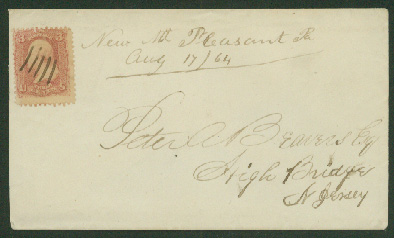 New Mt Pleasant Ia
Aug 17/64
Peter C Beavers Esq
High Bridge
N Jersey